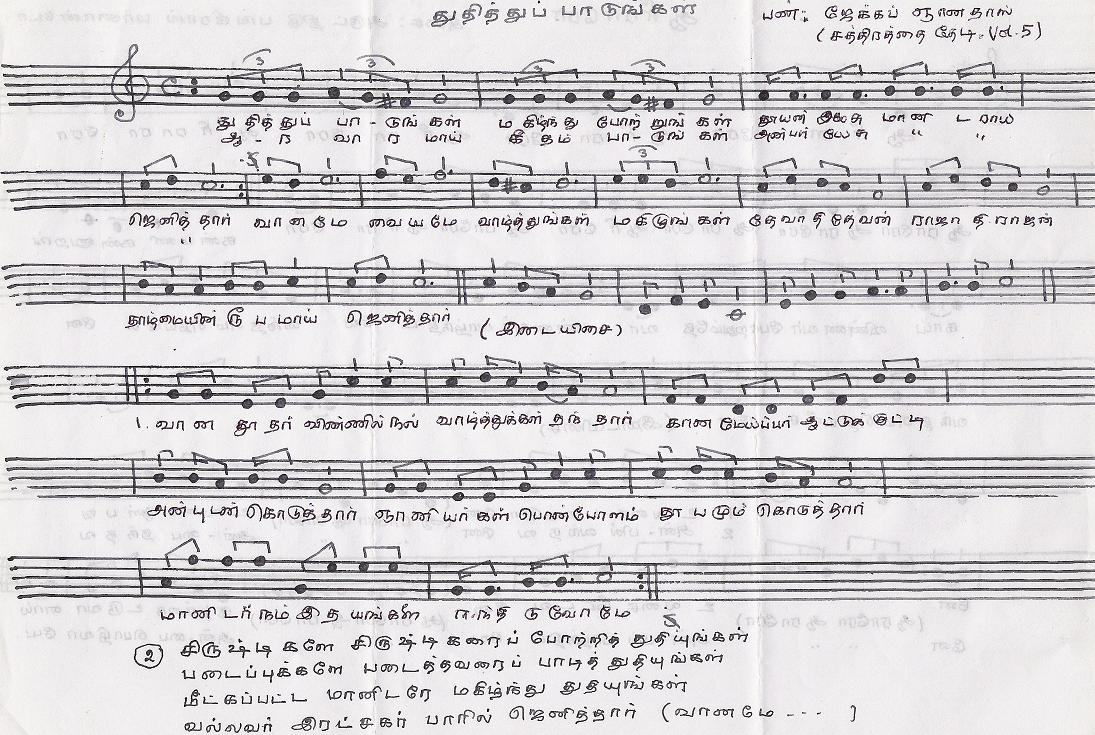 துதித்துப் பாடுங்கள்
பண்: ஜேக்கப் ஞானதாஸ்
(சத்திரத்தை தேடி. Vol. 5)
3 3 3 3
துதித்துப் பா - டுங் கள் மகிழ்ந்து போற் றுங் கள் தூயன் இயேசு மாண ட ராய்
ஆ - ர வா ர மாய் கீதம் பா - டுங் கள் அன்பர் இயேசு " "
3
ஜெனித் தார் வா ன மே வை ய மே வாழ்த்துங்கள் மகிழுங் கள் தேவாதி தேவன் ராஜா தி ராஜன்
"
தாழ்மையின் ரூ ப மாய் ஜெனித்தார் (இடையிசை)
1. வா ன தூ தர் விண்ணில் நல் வாழ்த்துக்கள் தந் தார் கான மேய்ப்பர் ஆட்டுக் குட்டி
அன்புடன் கொடுத்தார் ஞானி யர் கள் பொன்போளம் தூ ப மும் கொடுத் தார்
மானி டர் நம் இத யங்களை ஈ.ந்தி டு வோ மே
2 சிருஷ்டி களே சிருஷ்டி கரைப் போற்றித் துதியுங்கள்
படைப்புக்களே படைத்தவரைப் பாடித் துதியுங்கள்
மீட்கப்பட்ட மானிடரே மகிழ்ந்து துதியுங்கள்
வல்லவர் இரட்சகர் பாரில் ஜெனித்தார் (வானமே --- )